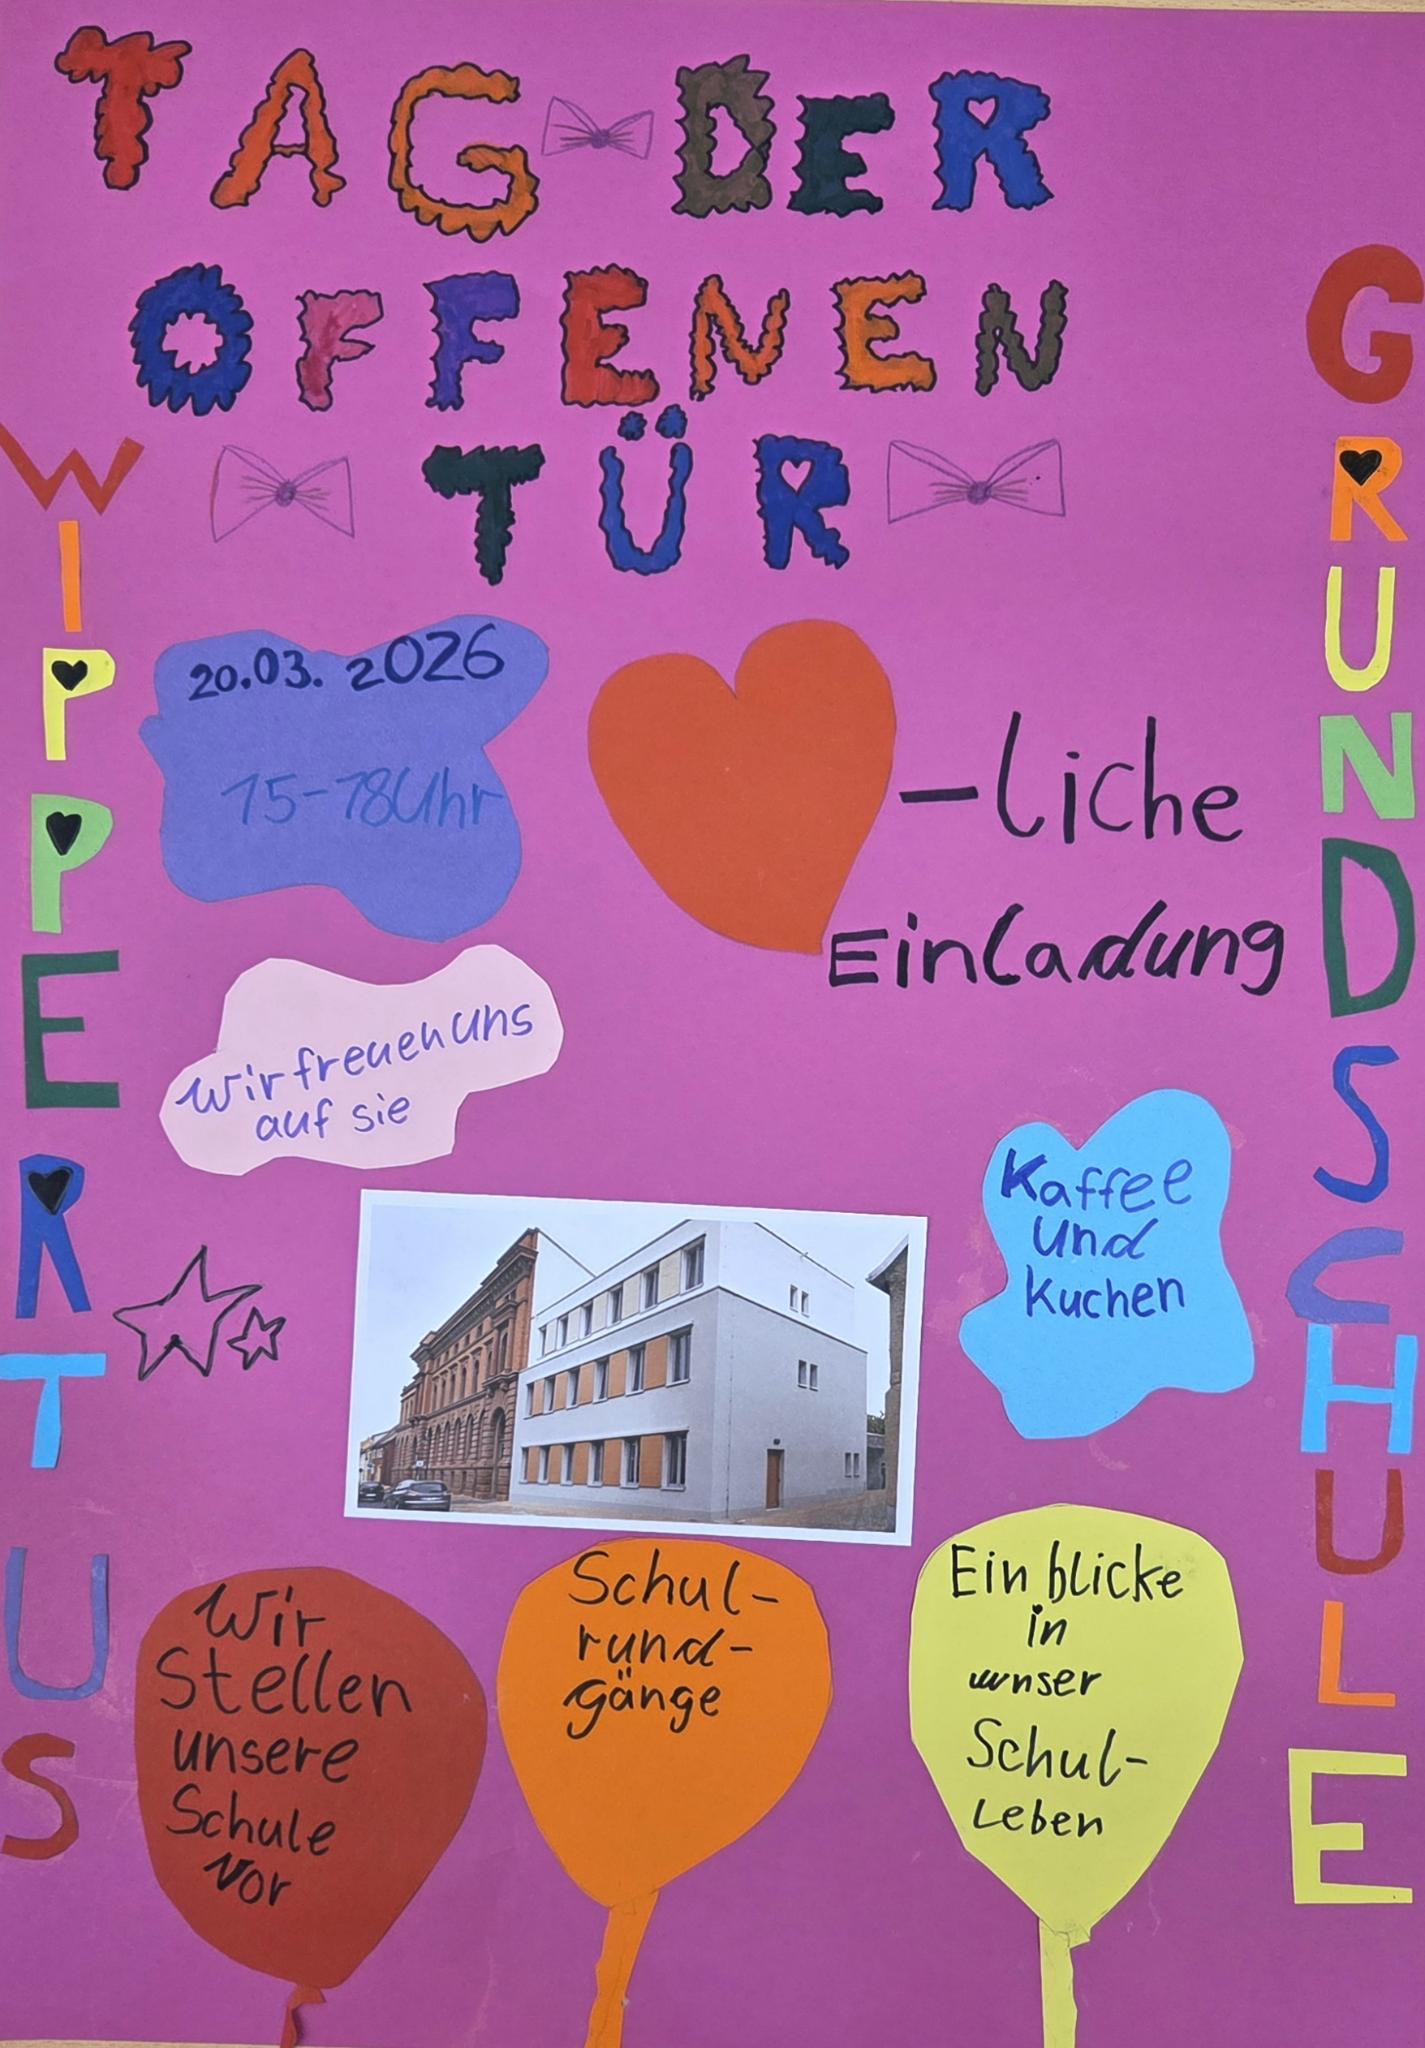 TAG DER
OFFENEN
TÜR
WIPPERTUS
GRUNDSCHULE
20.03.2026
15-18Uhr
-liche
Einladung
Wir freuen uns
auf sie
Kaffee
und
Kuchen
Wir
Stellen
unsere
Schule
Vor
Schul-
rund-
gänge
Einblicke
in
unser
Schul-
Leben